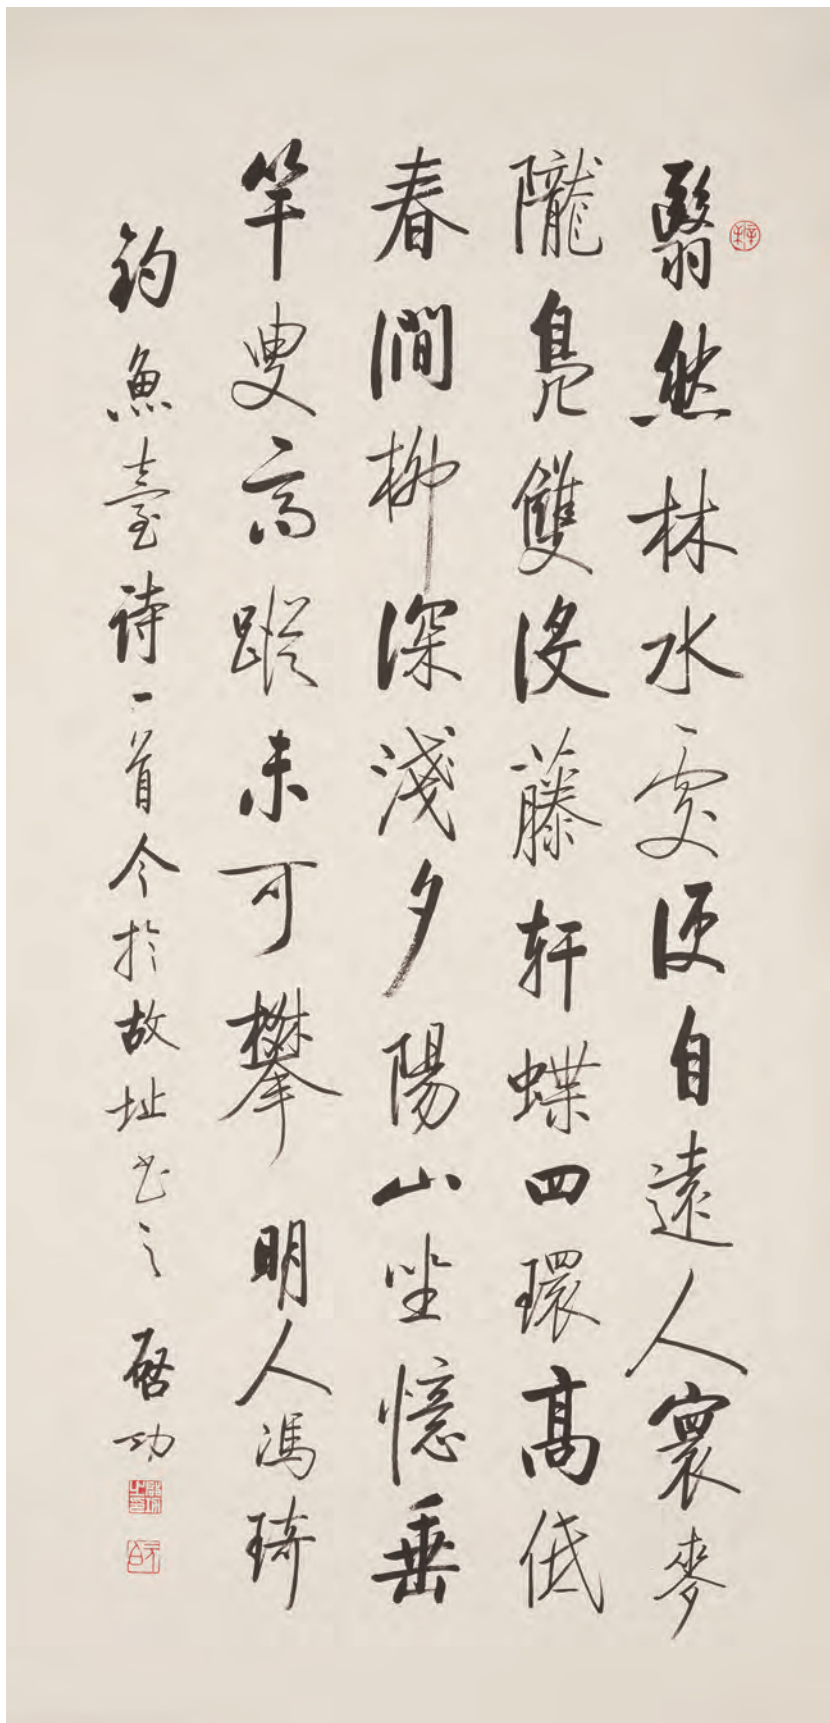 翳然林水處便自遠人寰麥
隴鳧雙沒藤軒蝶四環高低
春澗柳深淺夕陽山坐憶垂
竿叟高蹤未可攀 明人馮琦
釣魚臺詩一首今於故址书之 啓功
啓功之印
元白